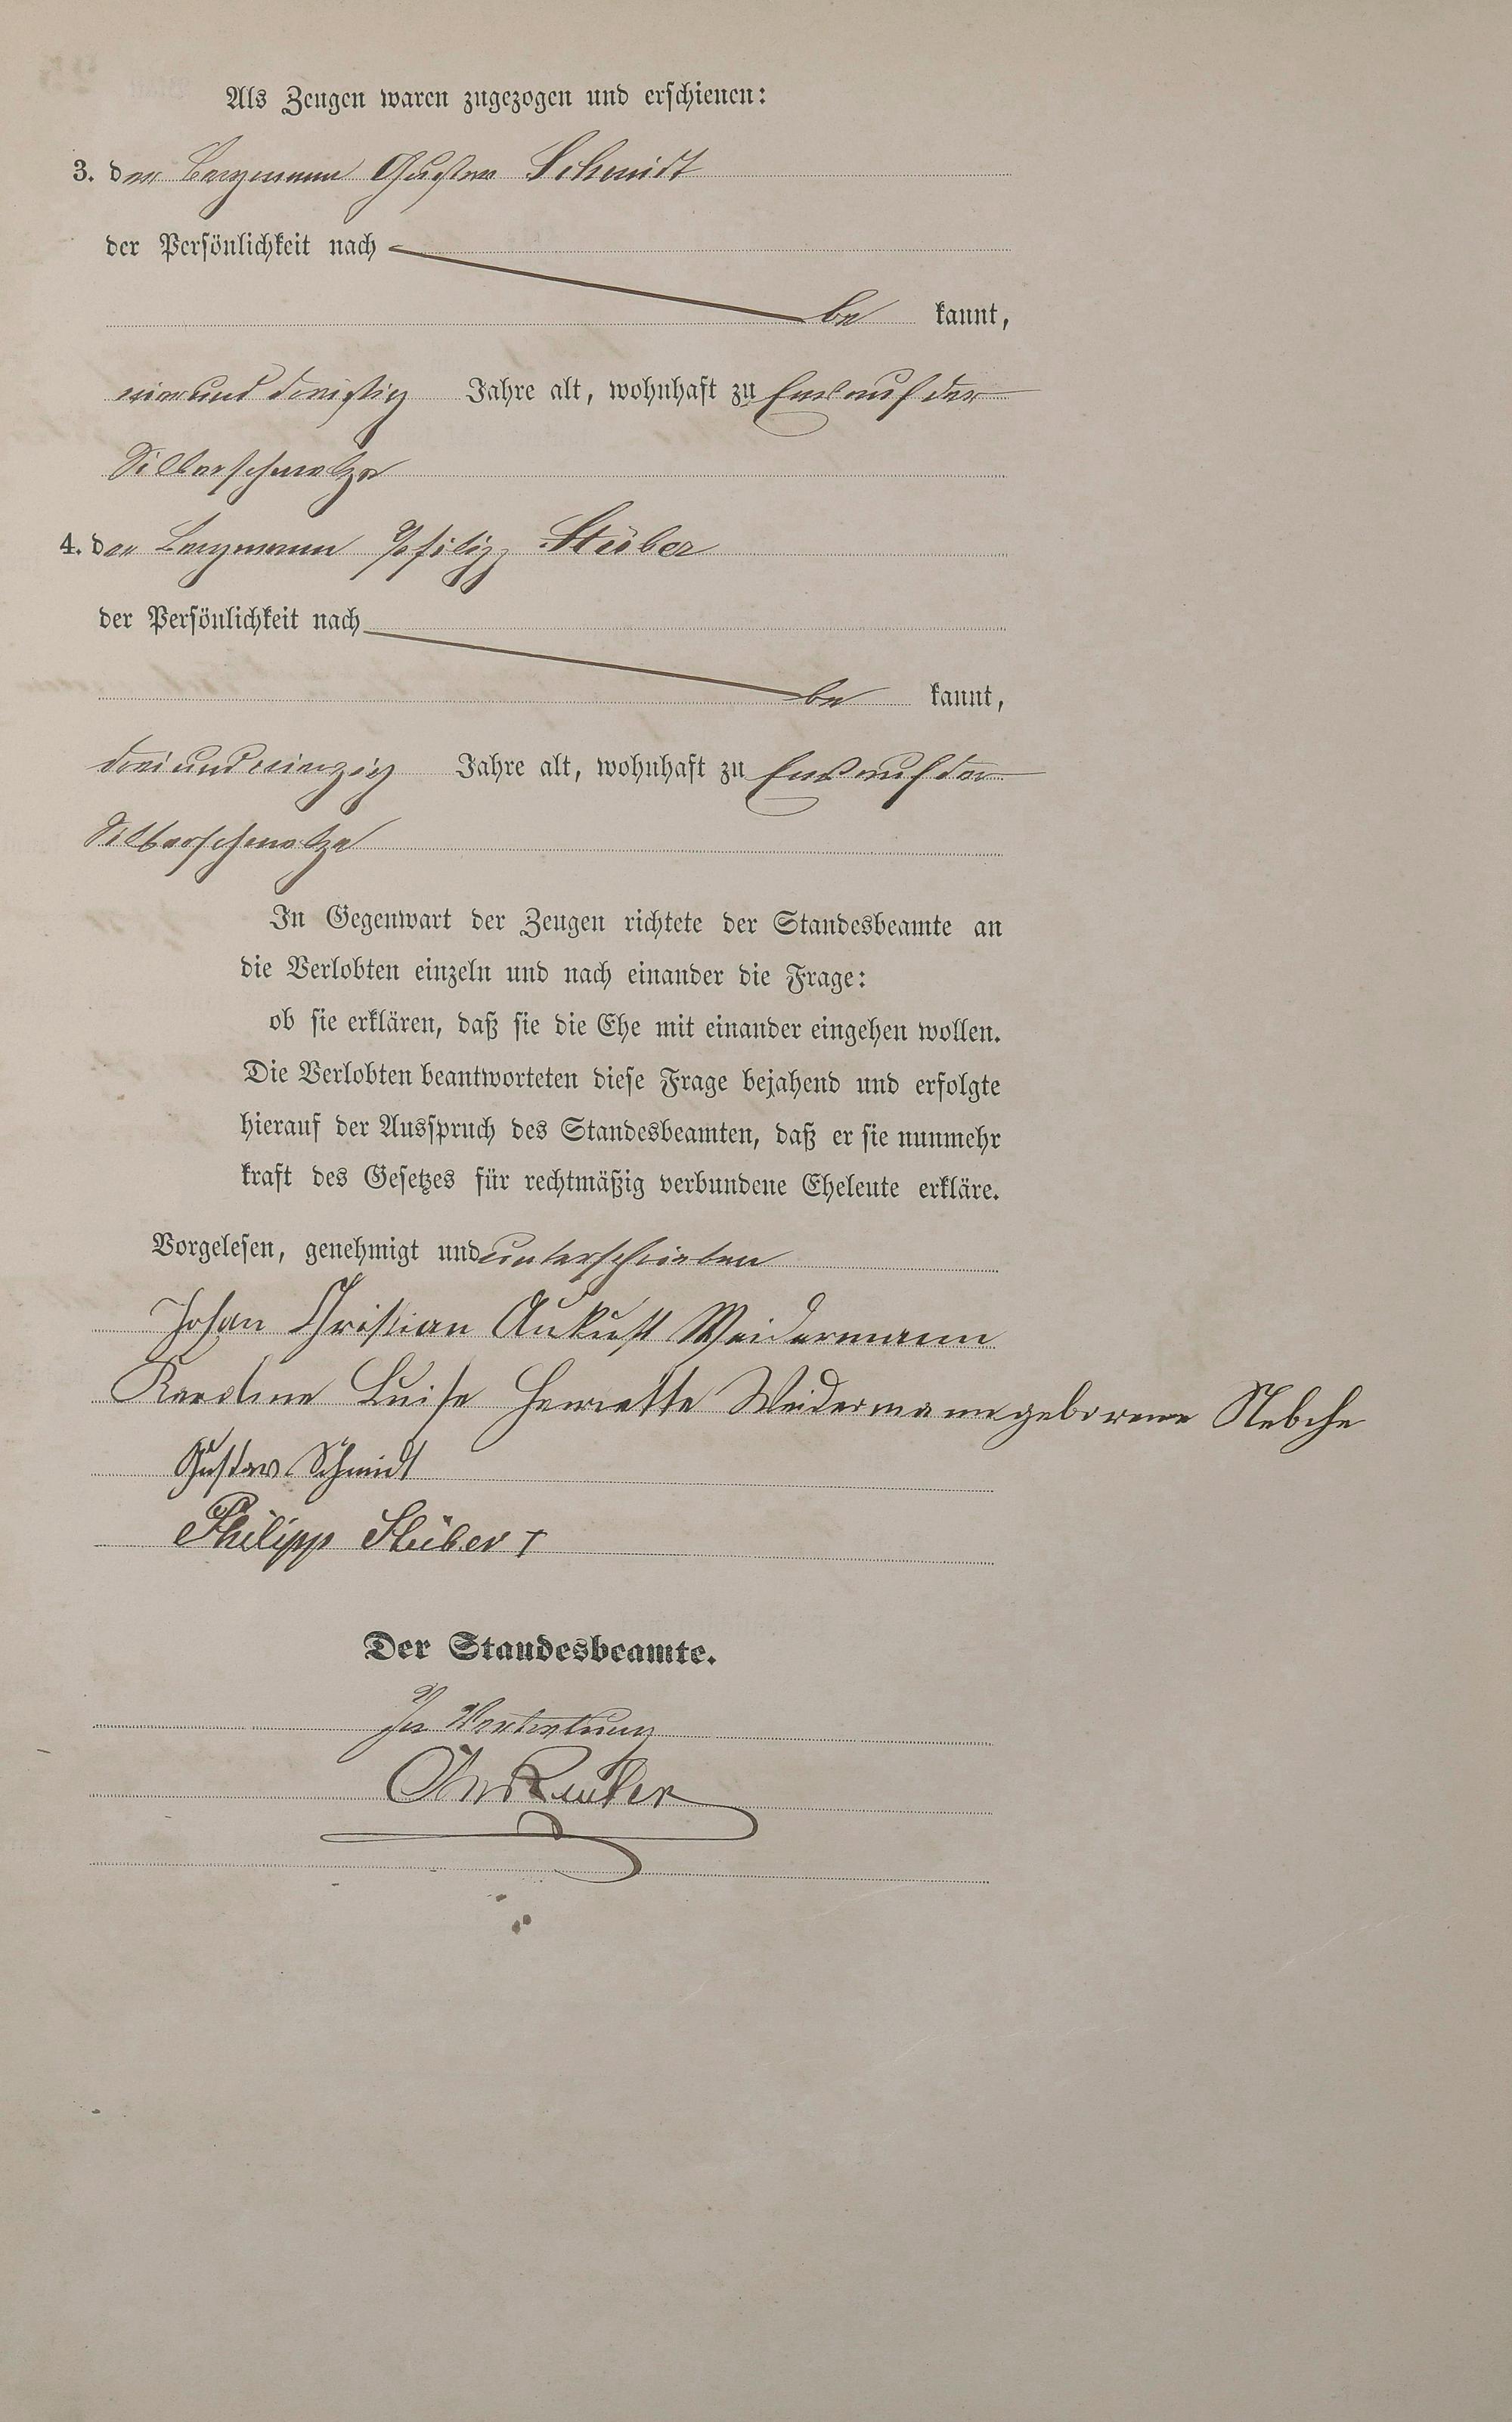 Als Zeugen waren zugezogen und erschienen:
3. der Bergmann Gustav Schmidt
der Persönlichkeit nach
be kannt,
vierunddreißig Jahre alt, wohnhaft zu Ems auf der
Silberschmelze
4. der Bergmann Philipp Stüber
der Persönlichkeit nach
be kannt,
dreiundvierzig Jahre alt, wohnhaft zu Ems auf der
Silberschmelze
In Gegenwart der Zeugen richtete der Standesbeamte an
die Verlobten einzeln und nach einander die Frage:
ob sie erklären, daß sie die Ehe mit einander eingehen wollen.
Die Verlobten beantworteten diese Frage bejahend und erfolgte
hierauf der Ausspruch des Standesbeamten, daß er sie nunmehr
kraft des Gesetzes für rechtmäßig verbundene Eheleute erkläre.
Vorgelesen, genehmigt und unterschrieben
Johan Christian Aukust Weidermann
Karoline Luise Henriette Weidermann geborene
Gustav Schmidt
Philipp Stüber
Der Standesbeamte.
In Vertretung